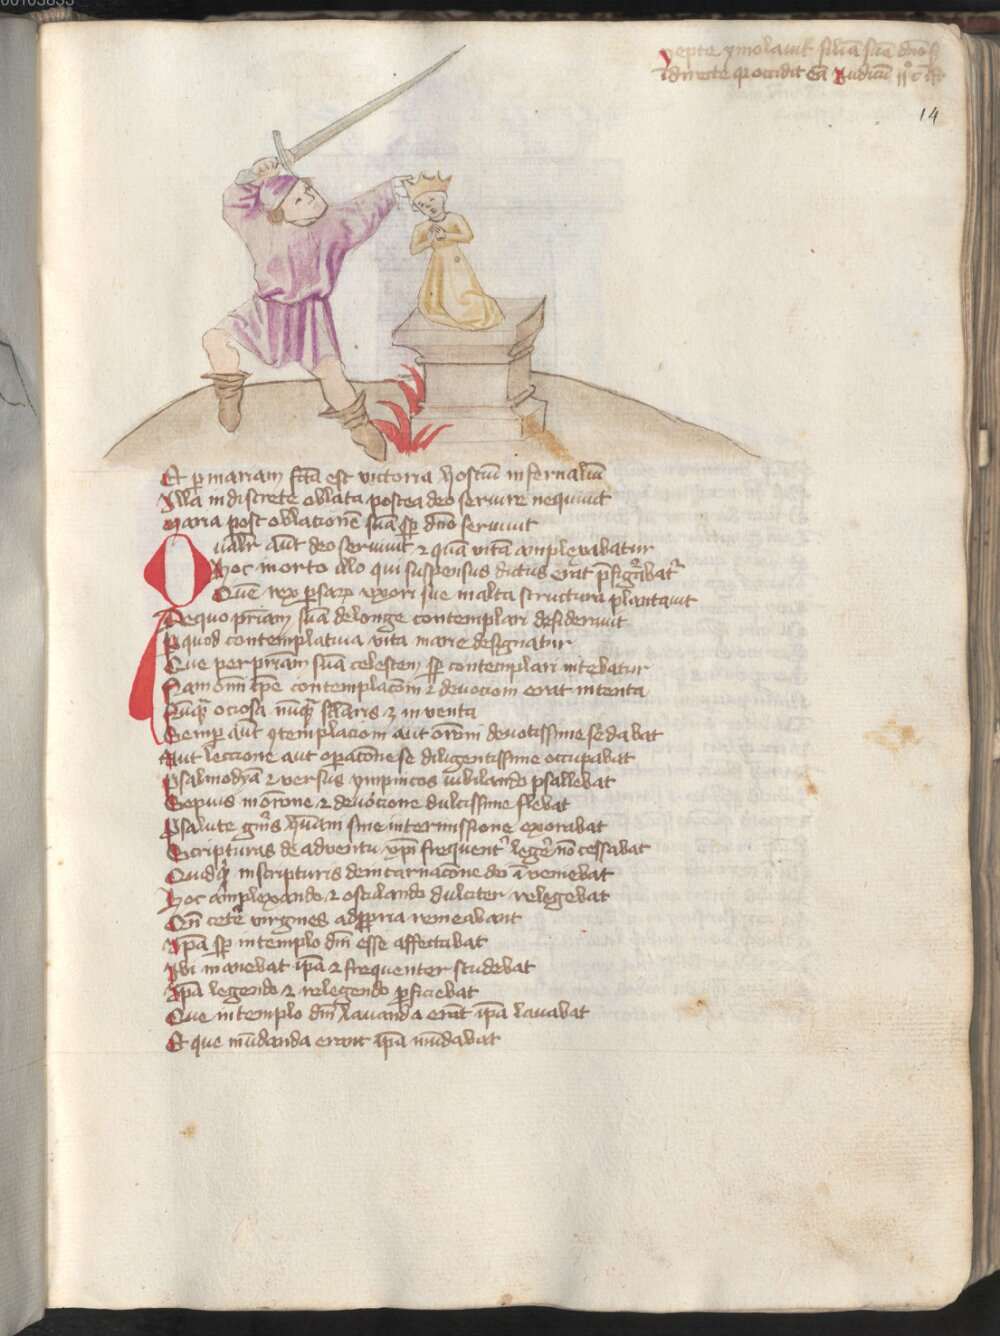 00103833
yepte ymolauit filiā suā dn̄o
īdirecte qr occidit eā Iudicū
14
Et p mariam fc̄a est victoria hostiū infernaliū
Illa indiscrete oblata postea deo seruire nequiuit
Maria post oblationē suā sp̄ dn̄o seruiuit
Qualr̄ aūt deo seruiuit ⁊ quā vitā amplexabatur
Hoc in orto illo qui suspensus dictus erat p̄figurabatr̄
Quē rex psarz vxori sue in alta structura plantauit
De quo pr̄iam suā delonge contemplari desiderauit
P quod contemplatiua vita marie designatur
Que per pr̄iam suā celestem sp̄ contemplari nitebatur
Nam omī tp̄e contemplacōni ⁊ deuocioni erat intenta
Nūqꝫ ociosa nūqꝫ sc̄laris ē inuenta
Semp aūt ꝯtemplacioni aut orōni deuotissime se dabat
Aut leccione aut opacōne se diligentissime occupabat
Psalmodyā ⁊ versus ympnicos iubilando psallebat
Sepius in orōne ⁊ deuocione dulcissime flebat
P salute gn̄is hūani sine intermissione exorabat
Scripturas de aduentu xp̄i frequentr̄ legē nō cessabat
Quidqꝫ in scripturis de incarnacōne dei īueniebat
Hoc amplexando ⁊ osculando dulciter relegebat
Cū cetē virgines ad ppria remeabant
Ipā sp̄ in templo dn̄i esse affectabat
Ibi manebat ipā ⁊ frequenter studebat
Ipā legendo ⁊ relegendo pficiebat
Que in templo dn̄i lauanda erāt ipā lauabat
Et que mūdanda erant ipā mūdabat